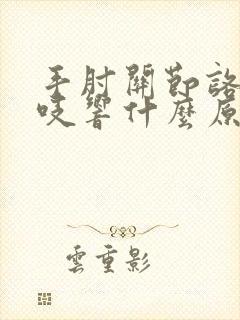 手肘關節詻
吱響什麼原
雲重影